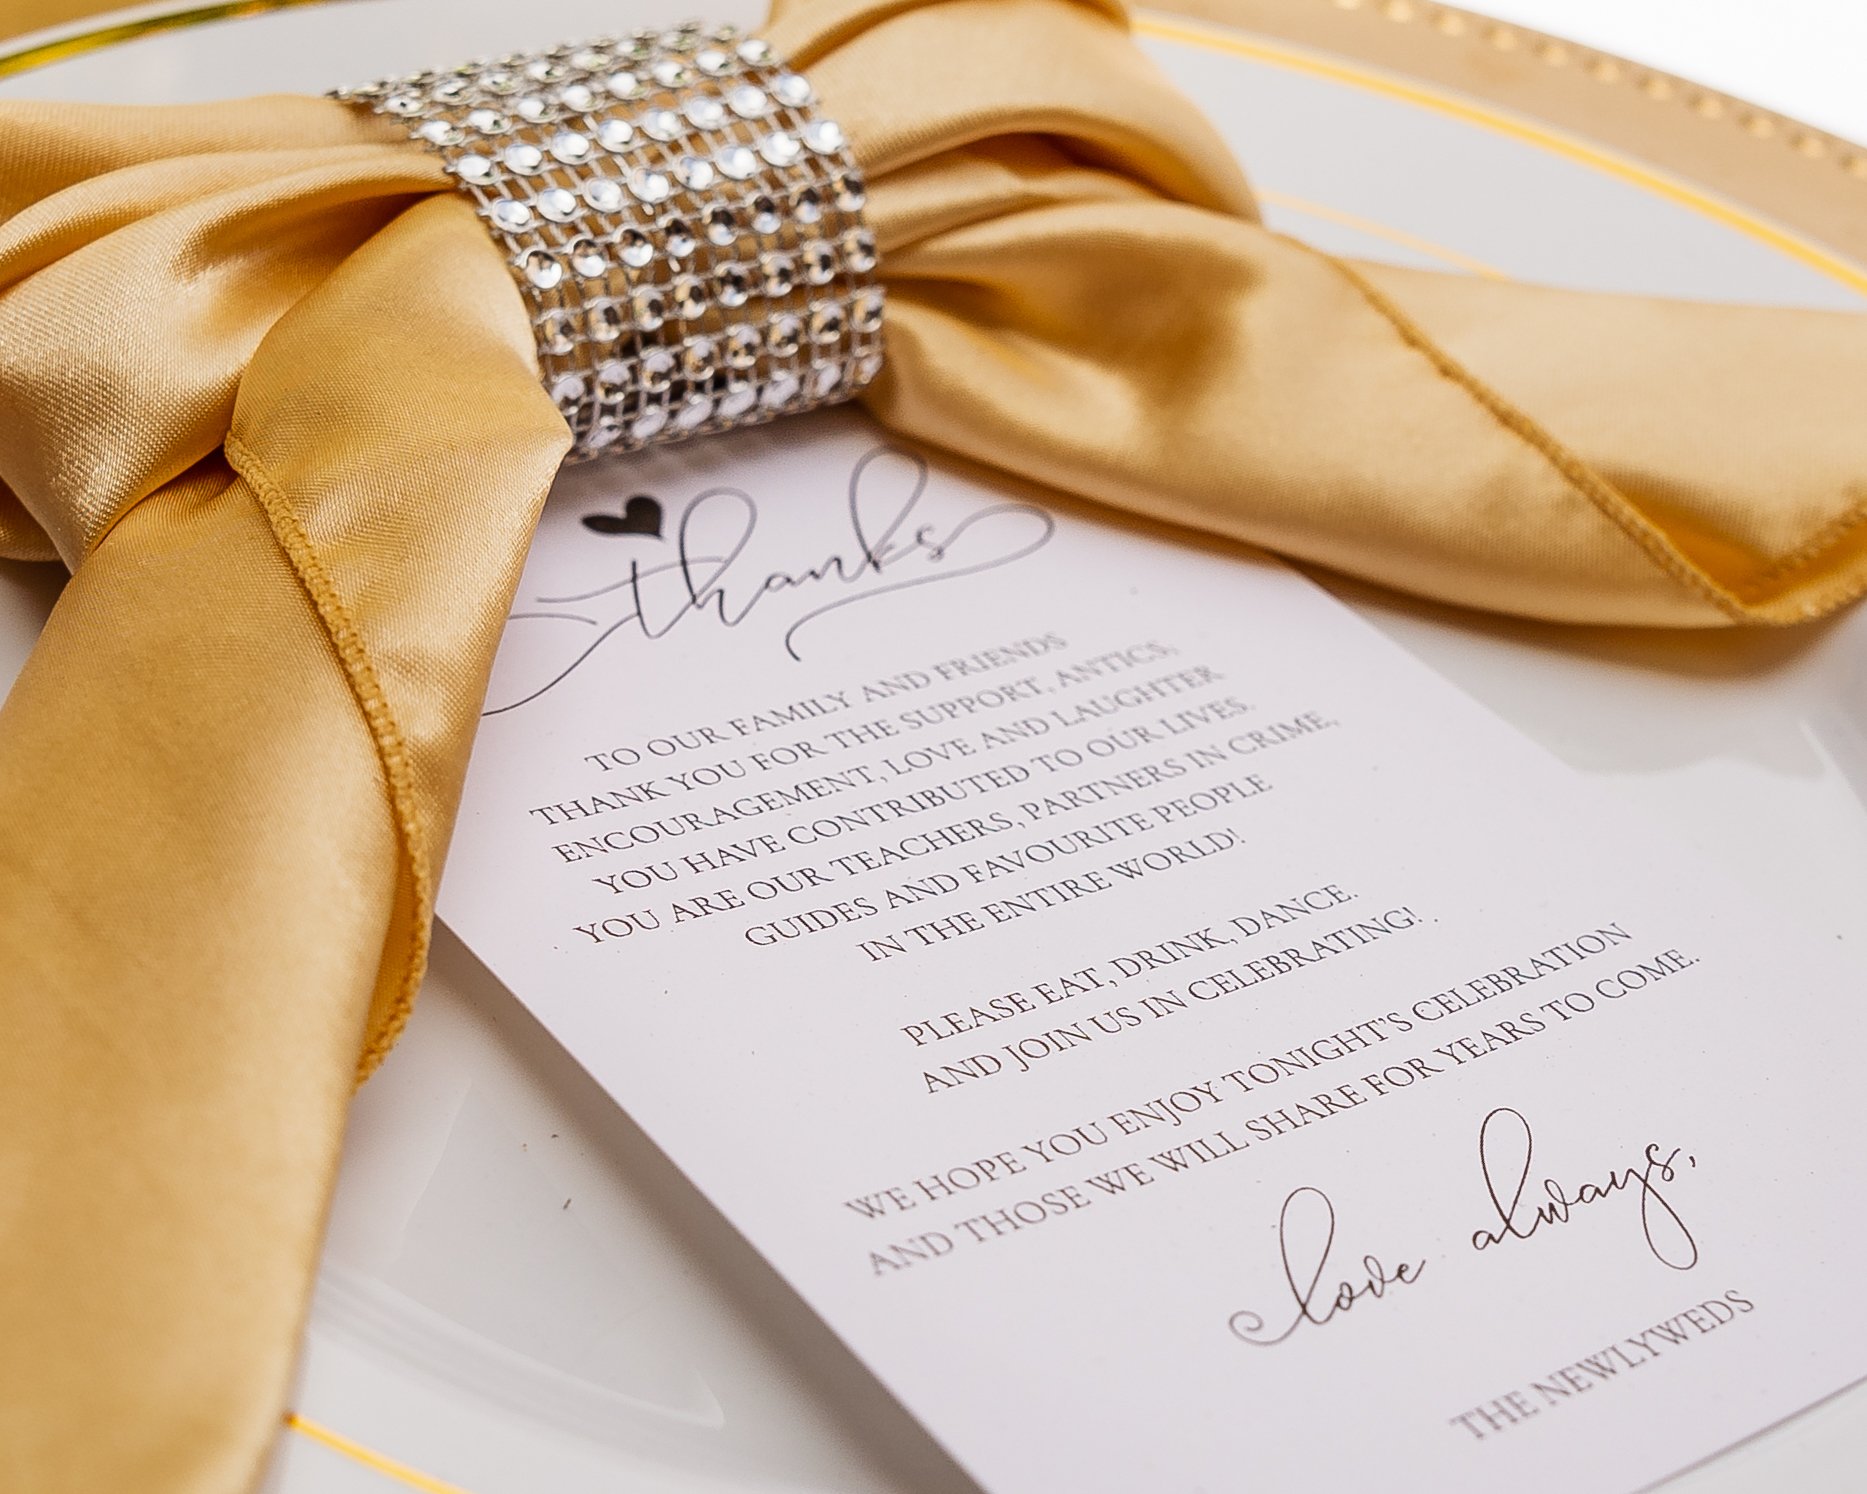 thanks
TO OUR FAMILY AND FRIENDS
THANK YOU FOR THE SUPPORT, ANTICS,
ENCOURAGEMENT, LOVE AND LAUGHTER
YOU HAVE CONTRIBUTED TO OUR LIVES.
YOU ARE OUR TEACHERS, PARTNERS IN CRIME,
GUIDES AND FAVOURITE PEOPLE
IN THE ENTIRE WORLD!
PLEASE EAT, DRINK, DANCE.
AND JOIN US IN CELEBRATING!
WE HOPE YOU ENJOY TONIGHT'S CELEBRATION
AND THOSE WE WILL SHARE FOR YEARS TO COME.
love always,
THE NEWLYWEDS